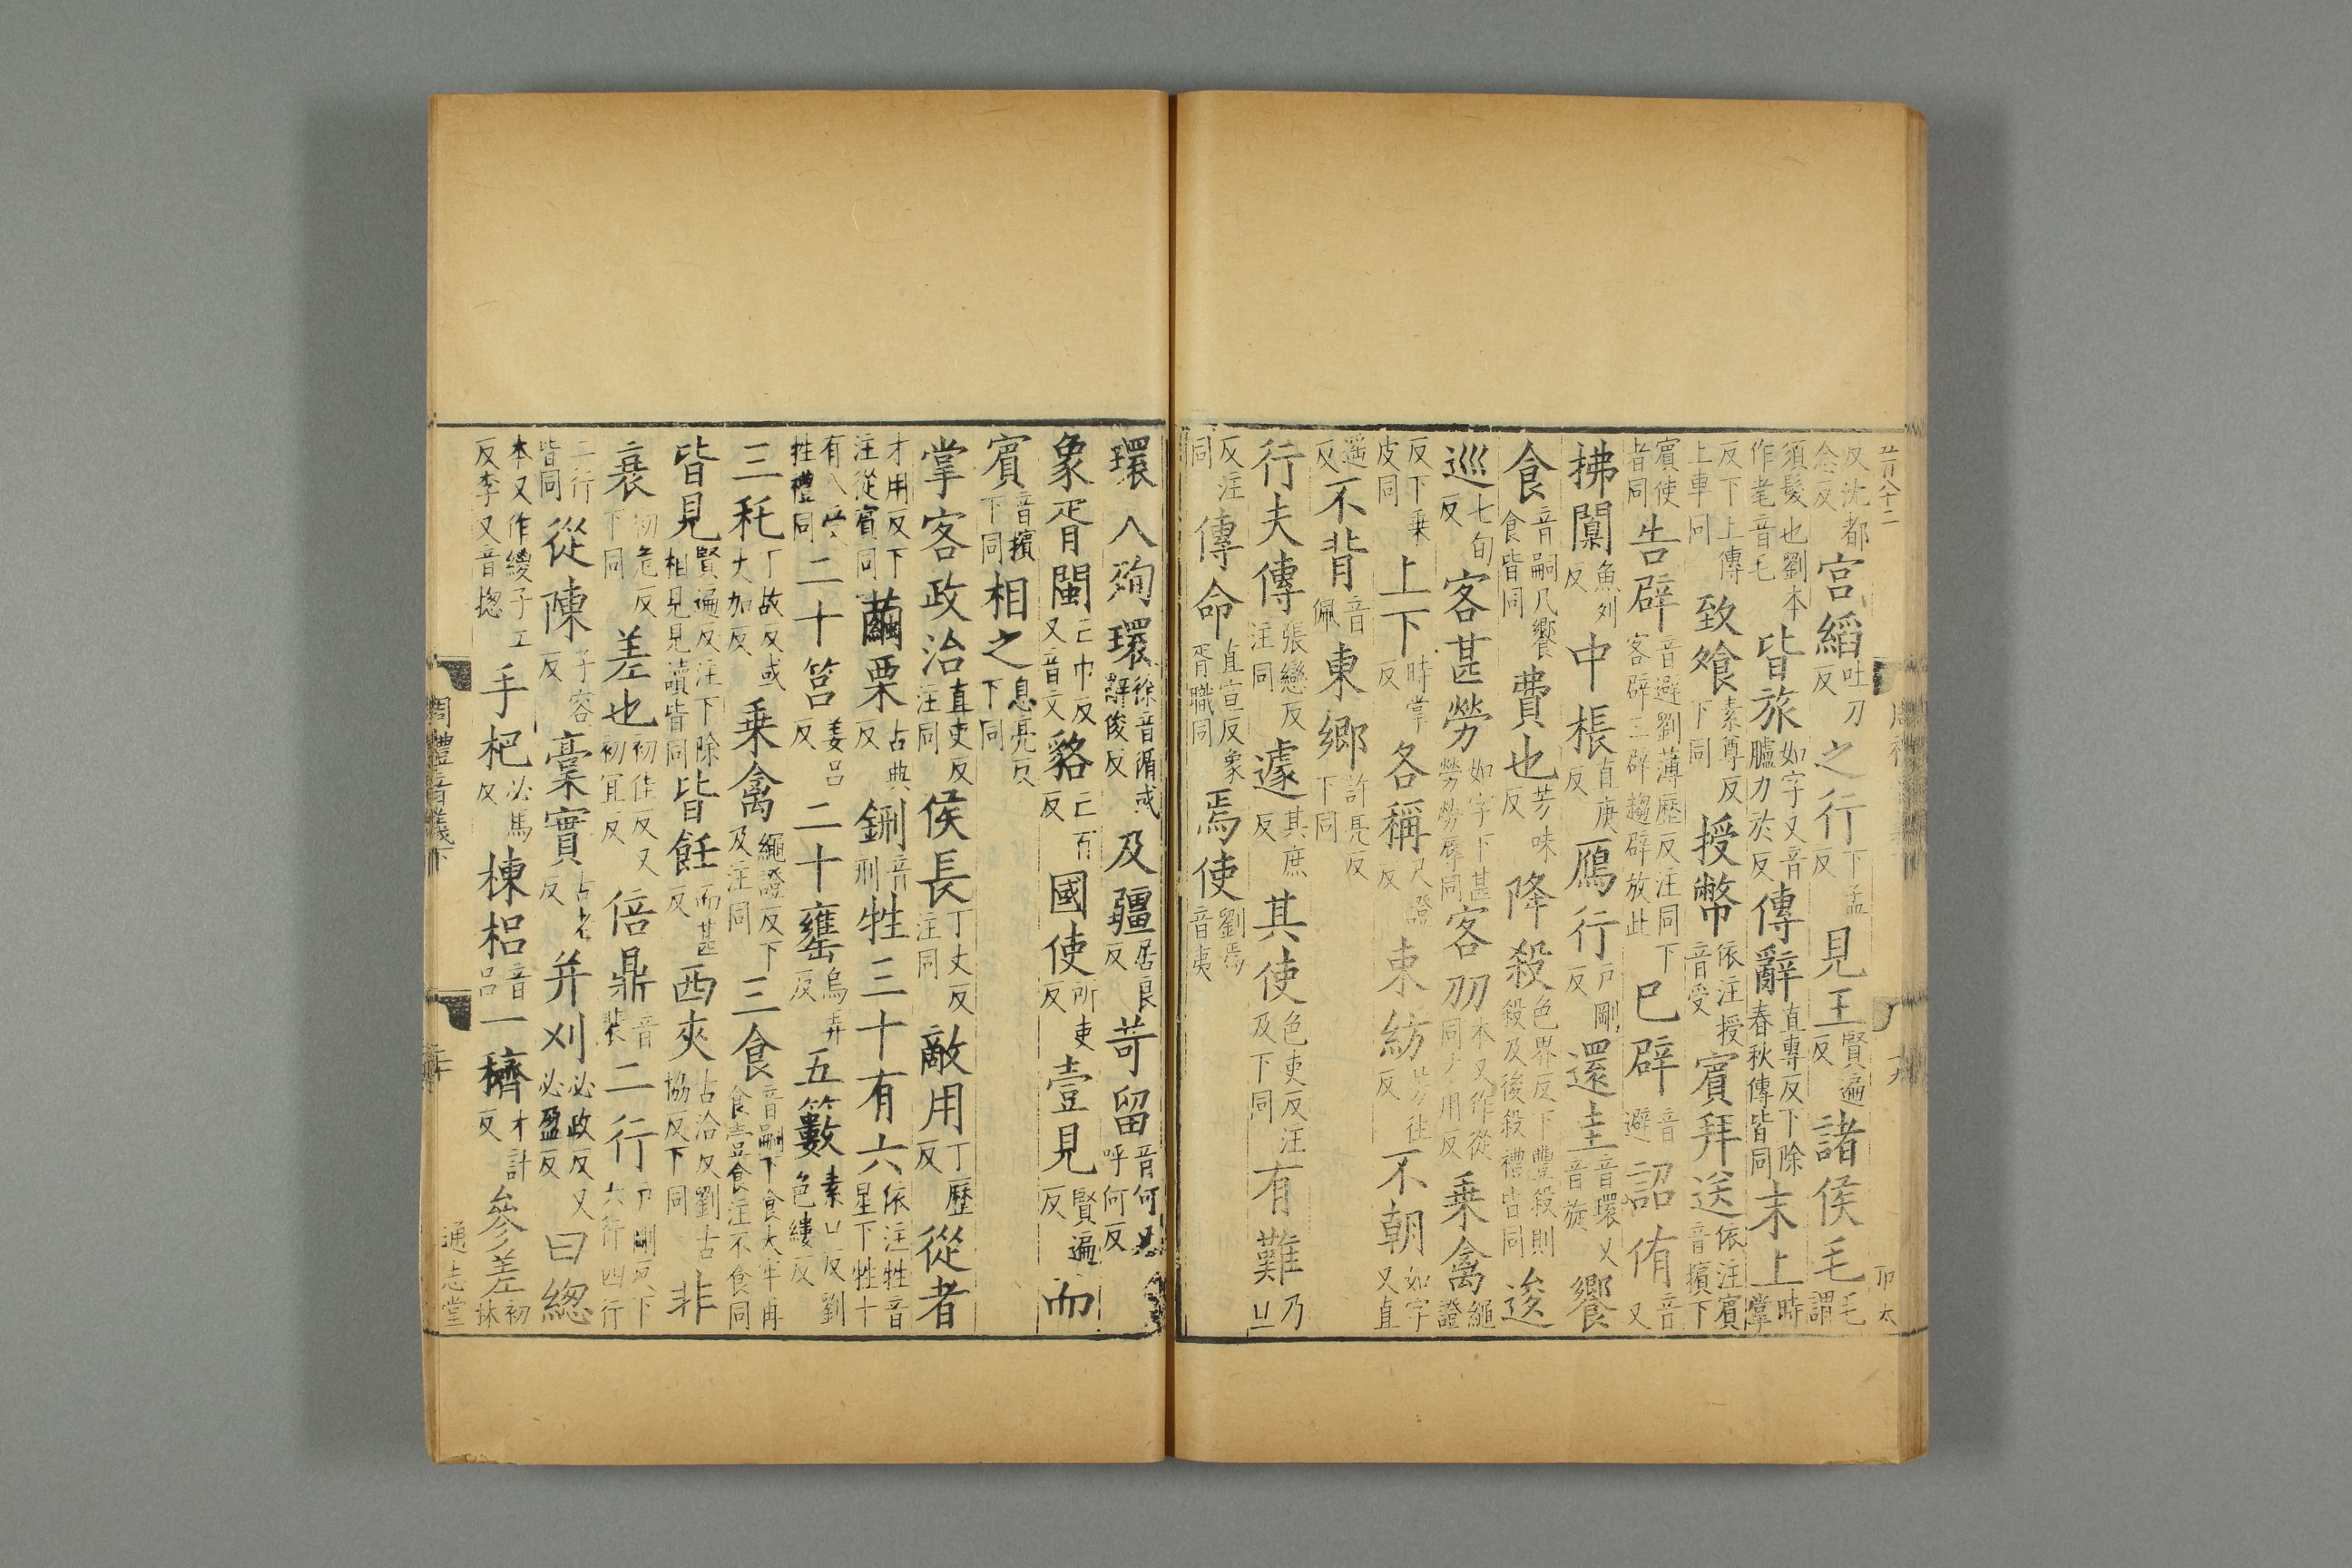 反沈都念反宮縚吐刀反之行下孟反見王賢遍反諸侯毛毛謂
須髮也劉本作耄音毛皆旅如字又音臚力於反傳辭直專反下除春秋傳皆同末上時掌
反下上傳上車同致飧素尊反下同授幣依注授音受賓拜送依注賓音擯下
賓使者同告辟音避劉薄歷反注同下客辟三辟趨辟放此巳辟音避詔侑音又
拂闑魚列反中棖直庚反鴈行戶剛反還圭音環又音旋饗
食音嗣凡饗食皆同費也芳味反降殺色界反下豐殺則殺及後殺禮皆同逡
巡七旬反客甚勞如字下甚勞勞辱同客刅本又作從同才用反乗禽繩證
反下乗皮同上下時掌反各稱尺證反東紡芳往反不朝如字又直
遥反不背音佩東鄉許亮反下同
行夫傳張戀反注同遽其庶反其使色吏反注及下同有難乃旦
反注同傳命直宣反象胥職同焉使劉焉音夷
環人殉環徐音循或辭俊反及疆居良反苛留音何又呼何反
象胥閩亡巾反又音文貉亡百反國使所吏反壹見賢遍反而
賓音擯下同相之息亮反下同
掌客政治直吏反注同侯長丁丈反注同敵用丁歷反從者
才用反下注從賓同繭栗古典反鉶音刑牲三十有六依注牲音星下牲十
有八牲禮同二十筥姜呂反二十罋烏弄反五籔素口反劉色縷反
三秅丁故反或大加反乗禽繩證反下及注同三食音嗣下食大牢再食壹食注不食同
皆見賢遍反注下除相見見讀皆同皆飪而甚反西夾古洽反劉古協反下同非
衰初危反下同差也初佳反又初宜反倍鼎音裴二行戶剛反下六行四行
二行皆同從陳子容反稾實古老反并刈必政反又必盈反曰緫
本又作緵子工反李又音揔手杷必馬反棟梠音呂一穧才計反參差初林
周禮音義下
二十
通志堂